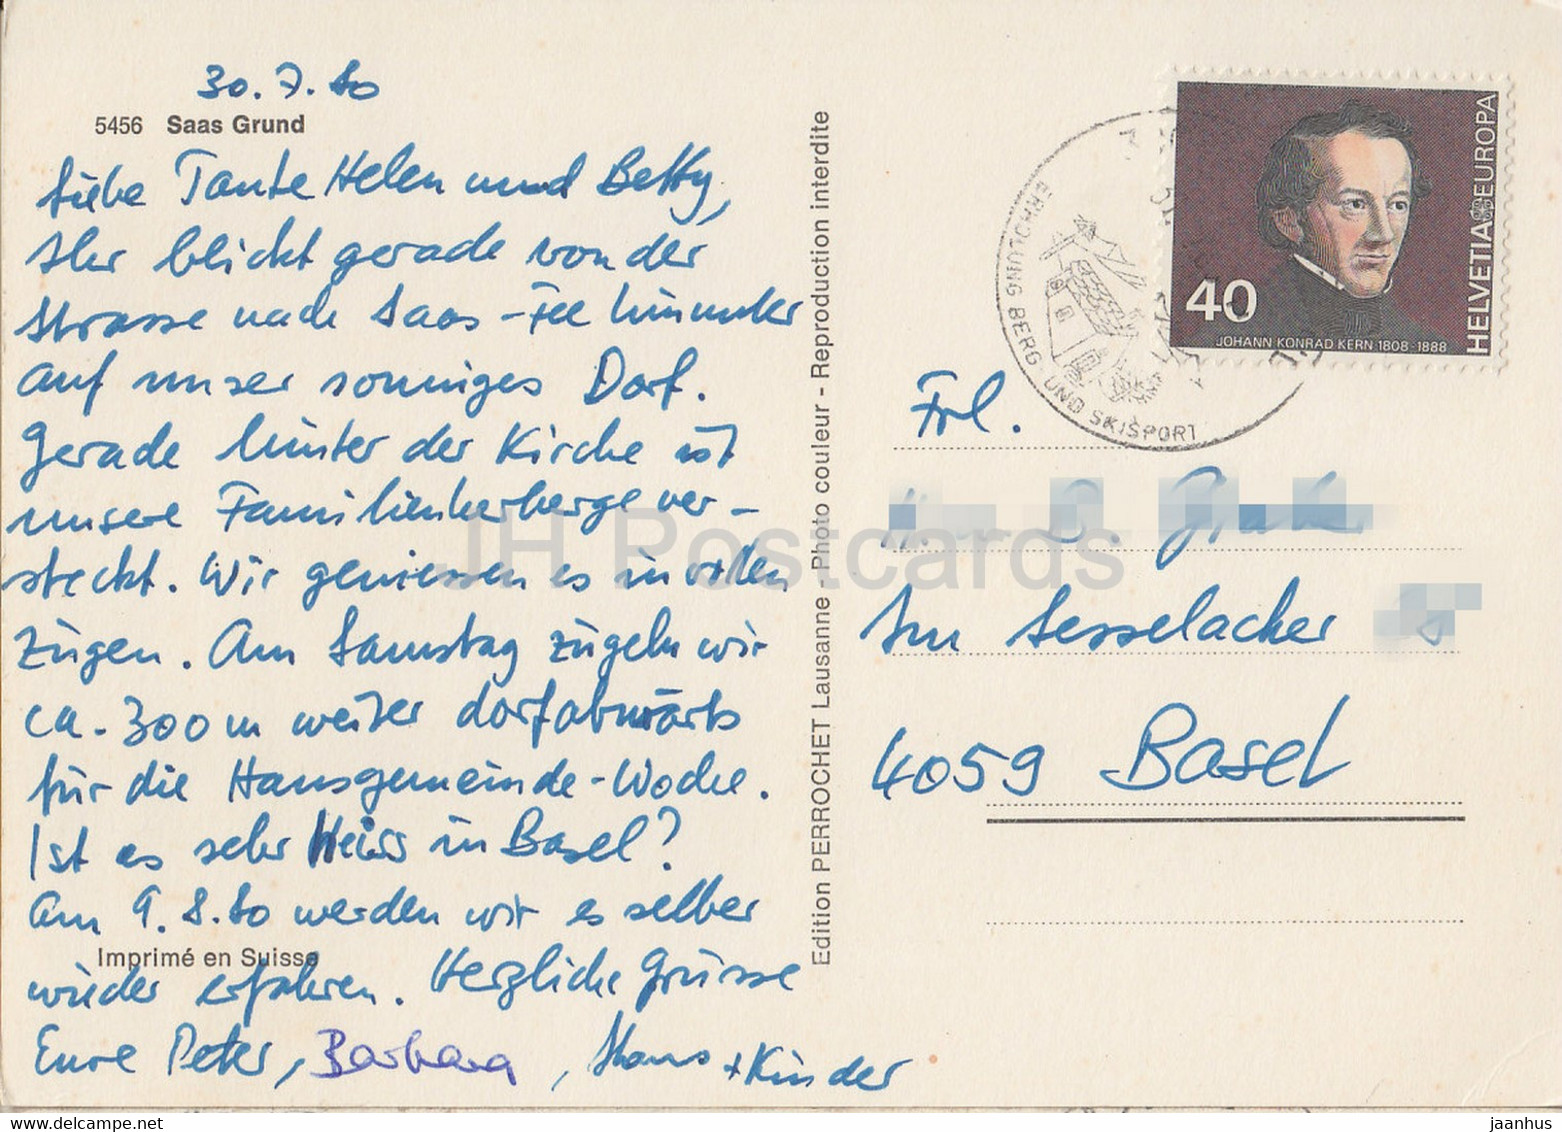 30.7.80
5456 Saas Grund
Liebe Tante Helen und Betty,
Ihr blickt gerade von der
Strasse nach Saas-Fee hinunter
auf unser sonniges Dorf.
Gerade hinter der Kirche ist
unsere Familienherberge ver-
steckt. Wir geniessen es in vollen
Zügen. Am Samstag zügeln wir
ca. 300m weiter dorfabwärts
für die Hausgemeinde-Woche.
Ist es sehr heiss in Basel?
Am 9.8.80 werden wir es selber
Imprimé en Suisse
wieder erfahren. Herzliche Grüsse
Eure Peter, Barbara, + Kinder
Edition PERROCHET Lausanne - Photo couleur - Reproduction interdite
ERHOLUNG BERG UND SKISPORT
HELVETIA EUROPA
40
JOHANN KONRAD KERN 1808-1888
Frl.
Im Sesselacker
4059 Basel
JH Postcards
jaanhus